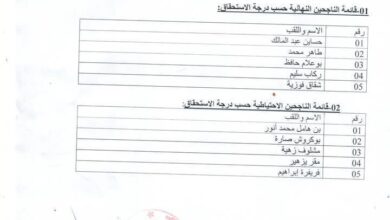 01-قائمة الناجحين النهائية حسب درجة الاستحقاق:
رقم الاسم واللقب
01 حساين عبد المالك
02 طاهر محمد
03 بوعلام حافظ
04 ركاب سليم
05 شقاق فوزية
02-قائمة الناجحين الاحتياطية حسب درجة الاستحقاق:
رقم الاسم واللقب
01 بن هامل محمد أنور
02 بوكروش صارة
03 مشلوف زهية
04 مقر يزهير
05 فريفرة إبراهيم